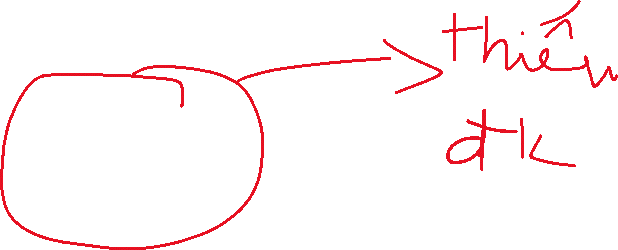 thiếu
đk